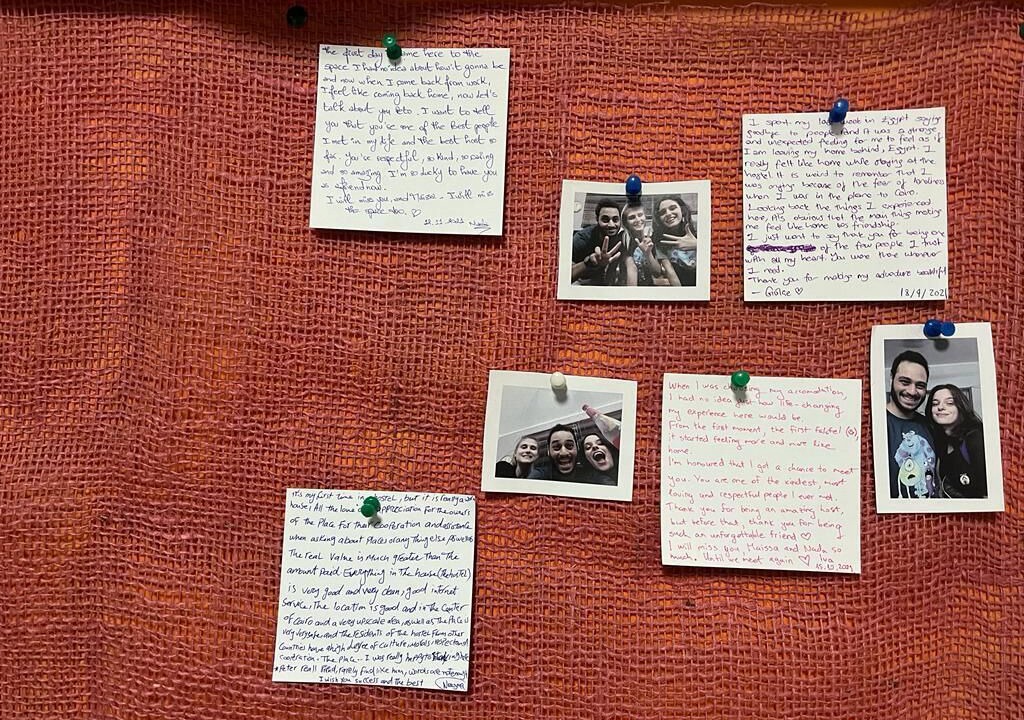 the first day I came here to the
space I had no idea about how it gonna be
and now when I come back from work,
I feel like coming back home, now let's
talk about you Peto. I want to tell
you that you're one of the Best people
I met in my life and the best host so
far. you're respectful, so kind, so caring
and so amazing I'm so lucky to have you
as friend now.
I will miss you, and I will miss
the space too. ♡
12.11.2021
I spent my last week in Egypt saying
goodbye to people and it was a strange
and unexpected feeling for me to feel as if
I am leaving my home behind, Egypt. I
really felt like home while staying at the
hostel. It is weird to remember that I
was crying because of the fear of loneliness
when I was in the plane to Cairo.
Looking back the things I experienced
here, it's obvious that the main thing making
me feel like home was friendship.
I just want to say thank you for being one
of the few people I trust
with all my heart. You were there whenever
I need.
Thank you for making my adventure beautiful
— ♡ 18/9/2021
When I was choosing my accomodation,
I had no idea just how life-changing
my experience here would be.
From the first moment, the first falafel (☺),
it started feeling more and more like
home.
I'm honoured that I got a chance to meet
you. You are one of the kindest, most
loving and respectful people I ever met.
Thank you for being an amazing host,
but before that, thank you for being
such an unforgettable friend ♡
I will miss you Maissa and Nada so
much. Until we meet again ♡ Iva
15.10.2021
it's my first time in hostel, but it is really a
house, All the love APPRECIATION For the owners
of the Place For their cooperation and assistance
when asking about Places or any Thing else
The real value is Much greater Than The
amount Paid. Everything in The house (The hostel)
is very good and very clean, good internet
service, The location is good and in the Center
of Cairo and a very upscale area, as well as The Place is
very very safe, and the residents of the hostel From other
Countries have a high degree of culture, morals, respect and
cooperation. The Place.. I was really happy to
Peter really kind, rarely find like him, words are not enough
I wish you success and the best